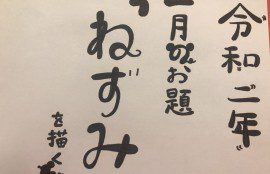 令和二年
月のお題
ねずみ
を描く